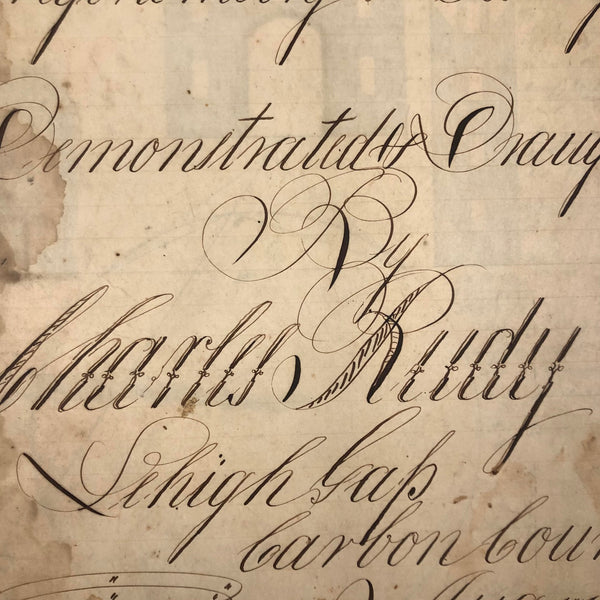 Demonstrated & Draug
By
Charles Rudy
Lehigh Gap
Carbon Coun